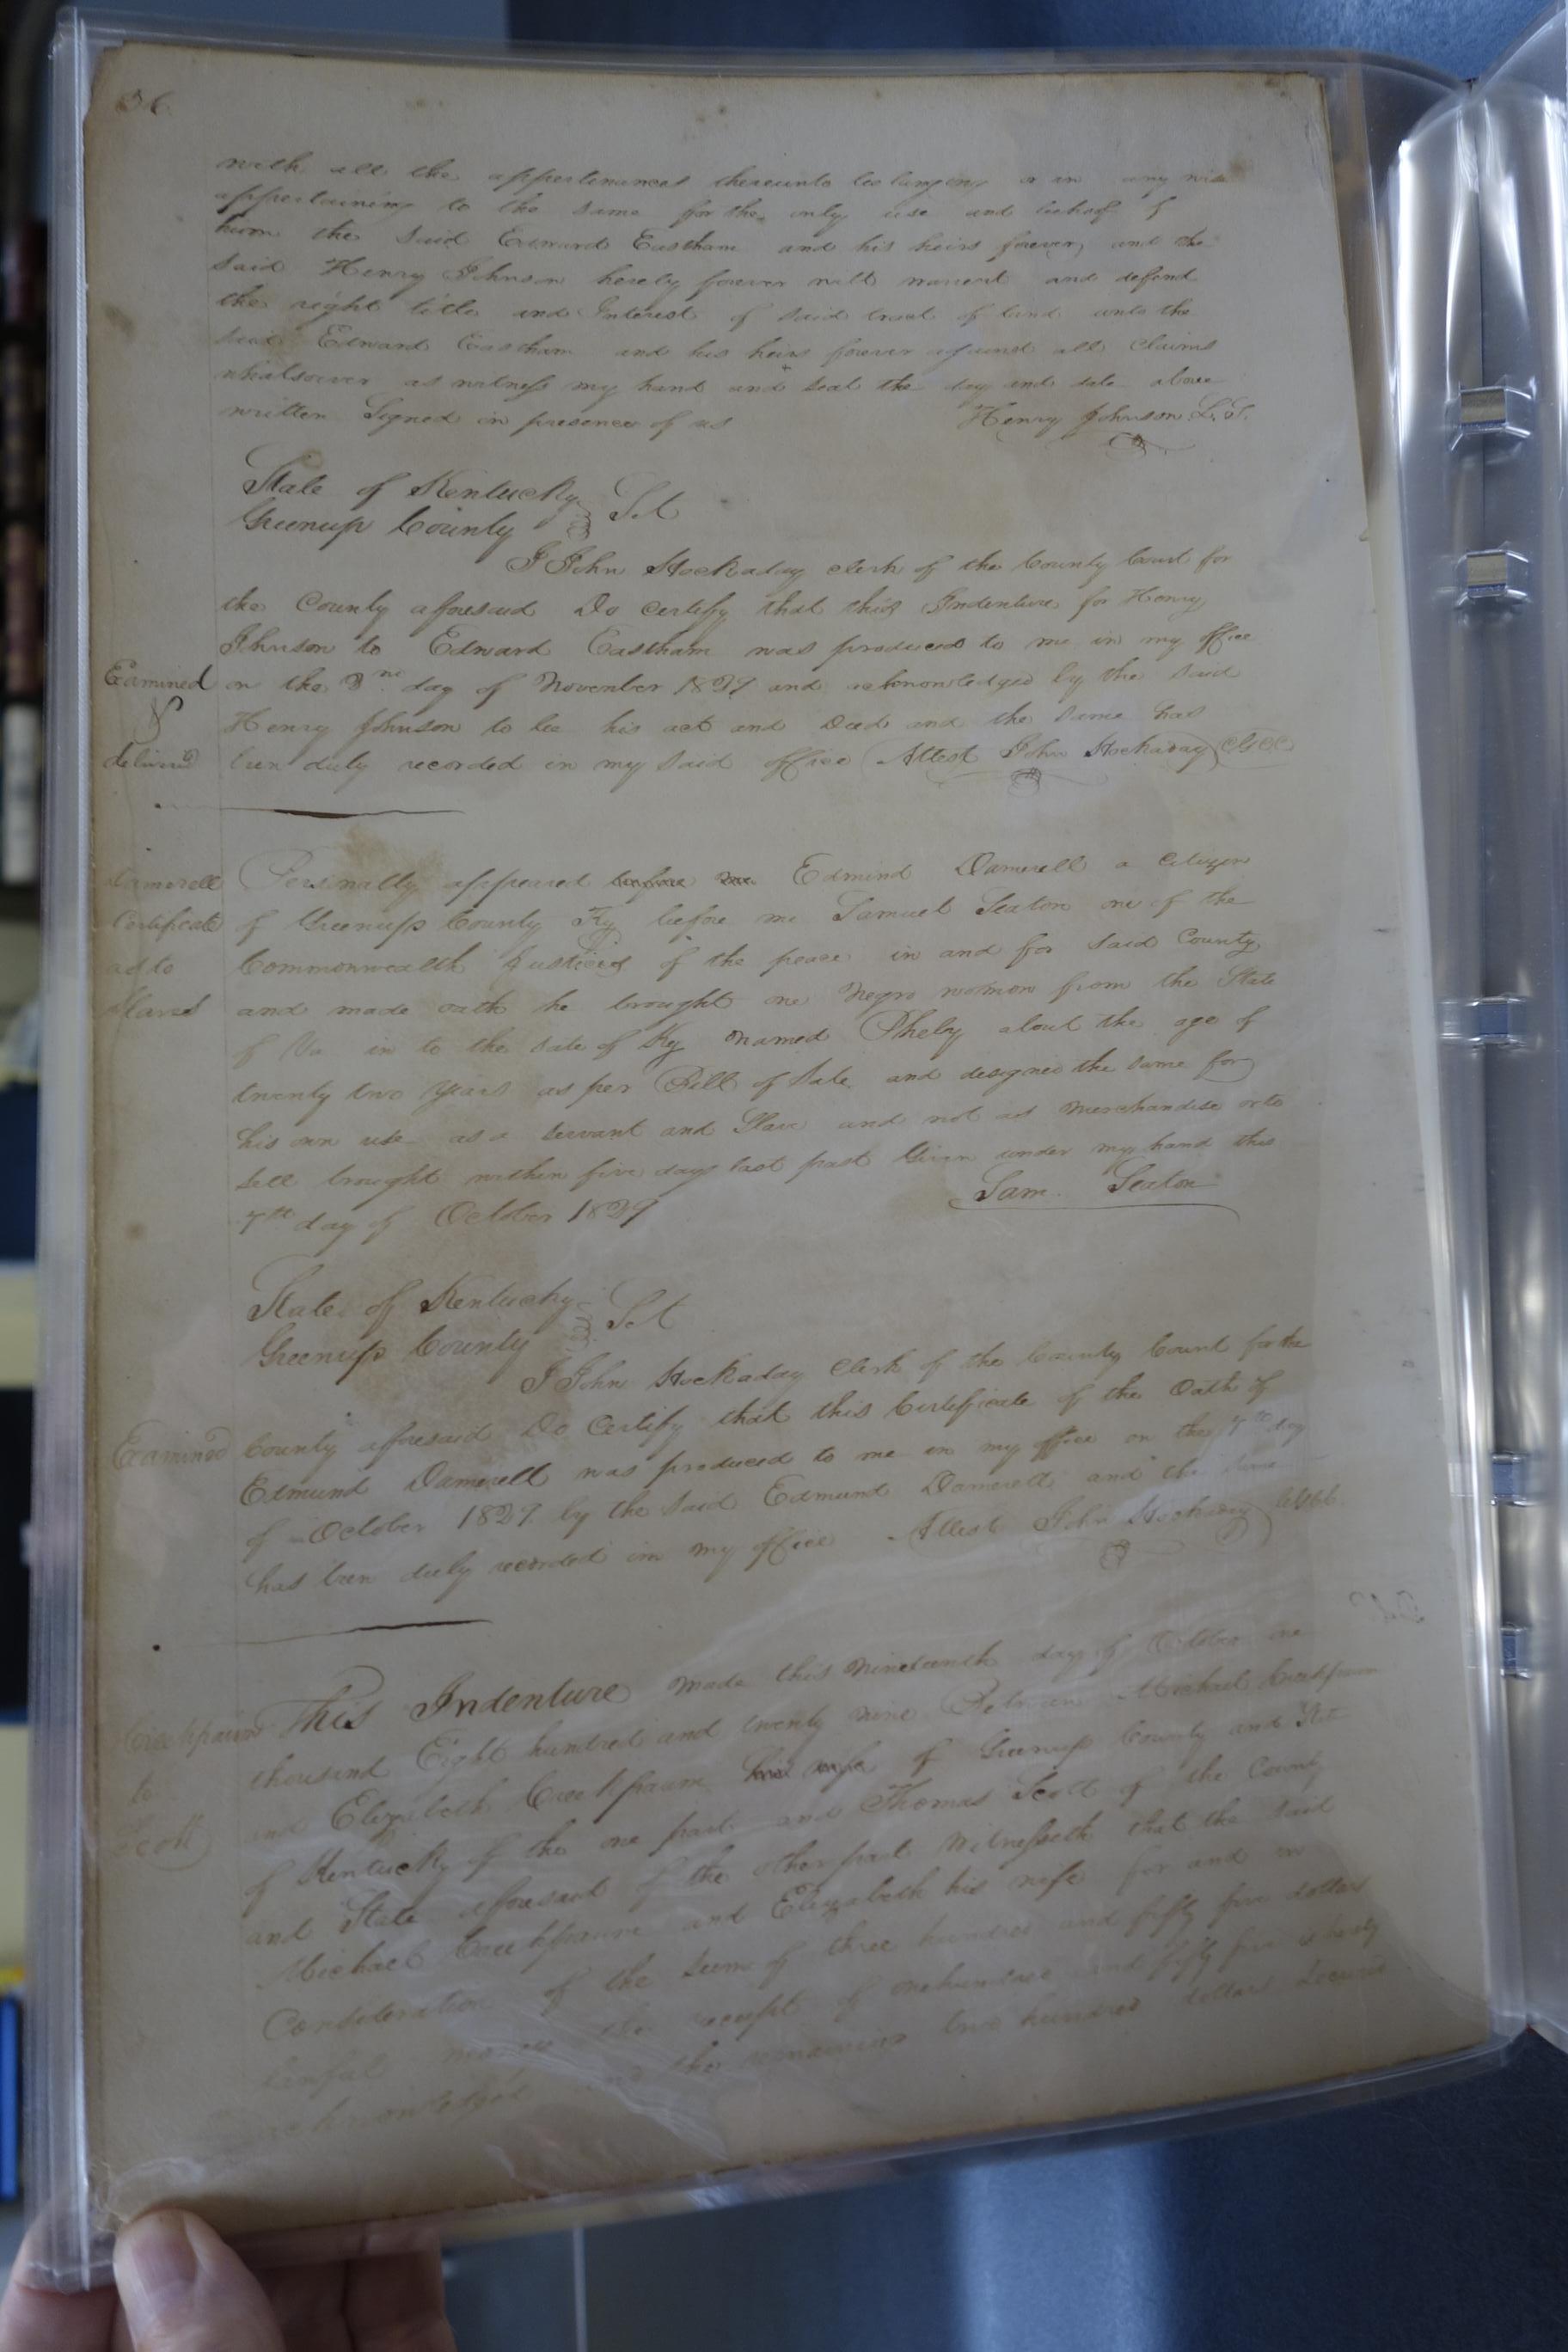 36
with all the appertinances thereunto belonging or in any wise
appertaining to the same for the only use and behoof of
him the said Edward Eastham and his heirs forever, and the
said Henry Johnson hereby forever will warrent and defend
the right title and Interest of said tract of land unto the
said Edward Eastham and his heirs forever against all claims
whatsoever as witness my hand and seal the day and date above
written Signed in presence of us Henry Johnson L.S.
State of Kentucky
Greenup County Sct
I John Hockaday clerk of the County Court for
the County aforesaid Do certify that this Indenture for Henry
Johnson to Edward Eastham was produced to me in my office
Examined on the 3rd day of November 1829 and acknowledged by the said
& Henry Johnson to be his act and Deed and the same has
deliverd been duly recorded in my said office Attest John Hockaday
Damerell Personally appeared before me Edmind Damerell a Citizen
Certificate of Greenup County Ky before me Samuel Seaton one of the
as to Commonwealth Justices of the peace in and for said County
slaves and made oath he brought one Negro woman from the State
of Va in to the state of Ky named Pheby about the age of
twenty two years as per Bill of Sale and designes the same for
his own use as a servant and Slave and not as merchandise or to
sell brought within five days last past Given under my hand this
7th day of October 1829 Sam. Seaton
State of Kentucky
Greenup County Sct
I John Hockaday Clerk of the County Court for the
Examined County aforesaid Do Certify that this Certificate of the Oath of
Edmund Damerell was produced to me in my office on the 7th day
of October 1829 by the said Edmund Damerell and the same
has been duly recorded in my office Attest John Hockaday
This Indenture made this nineteenth day of October one
to thousand Eight hundred and twenty nine Between Michael
Scott and Elizabeth his wife of Greenup County and State
of Kentucky of the one part and Thomas Scott of the County
and State aforesaid of the other part Witnesseth that the said
Michael and Elizabeth his wife for and in
Consideration of the sum of three hundred and fifty five dollars
lawful money the receipt of one hundred and fifty five is hereby
acknowledged and the remaining two hundred dollars